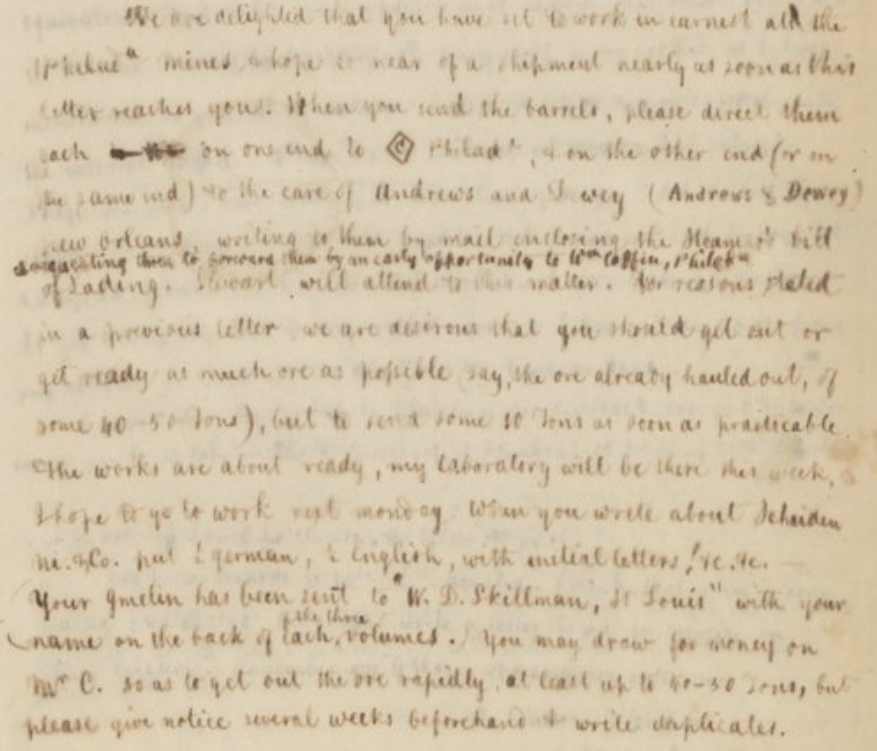 We are delighted that you have set to work in earnest at the
mines & hope to hear of a shipment nearly as soon as this
letter reaches you. When you send the barrels, please direct them
each on one end to C Philada, & on the other end (or on
the same end) to the care of Andrews and Dewey (Andrews & Dewey)
New Orleans, writing to them by mail enclosing the Steamer's bill
requesting them to forward them by an early opportunity to Wm Coffin, Philada
of Lading. Stewart will attend to this matter. For reasons stated
in a previous letter we are desirous that you should get out or
get ready as much ore as possible say, the ore already hauled out, of
some 40-50 Tons), but to send some 10 Tons as soon as practicable.
The works are about ready, my laboratory will be there this week,
I hope to go to work next monday When you write about
Ni. & Co. put ½ german, ½ English, with initial letters, &c. &c.
Your Gmelin has been sent to "W. D. Skillman, St Louis" with your
name on the back of each, the three volumes.) You may draw for money on
Mr C. so as to get out the ore rapidly, at least up to 40-50 Tons, but
please give notice several weeks beforehand & write duplicates.